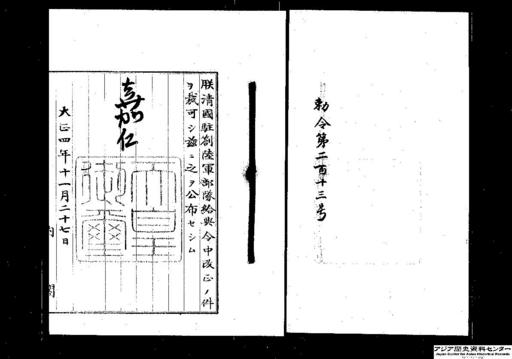 勅令第二百十三号
朕清國駐剳陸軍部隊給與令中改正ノ件
ヲ裁可シ茲ニ之ヲ公布セシム
嘉仁
天皇御璽
大正四年十一月二十七日
内閣
アジア歴史資料センター
Japan Center for Asian Historical Records